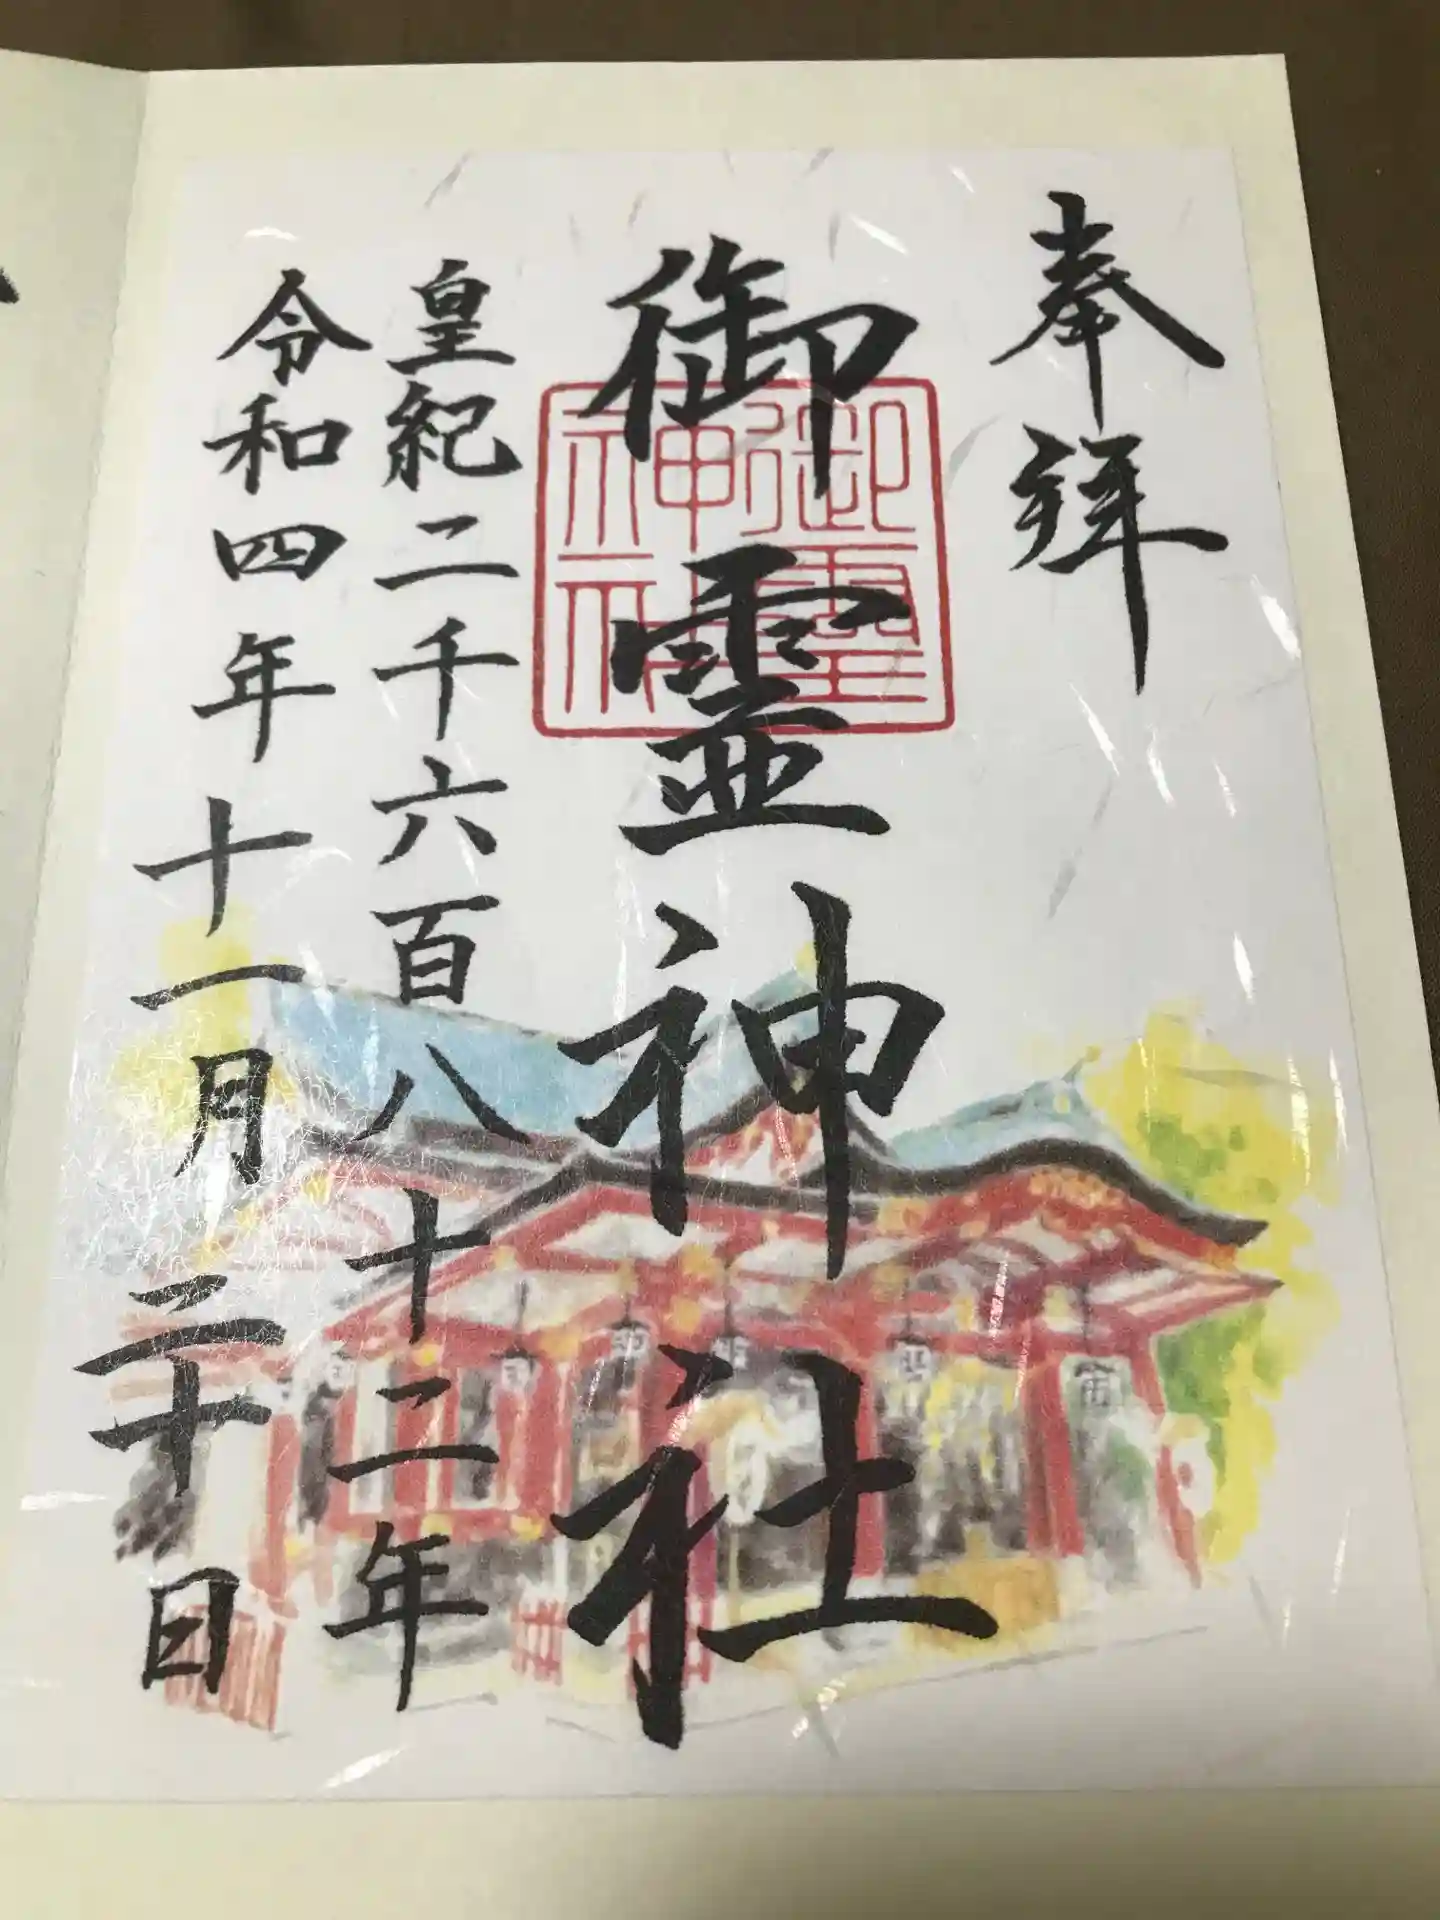 奉拝
御霊神社
御靈神社
皇紀二千六百八十二年
令和四年十一月二十日